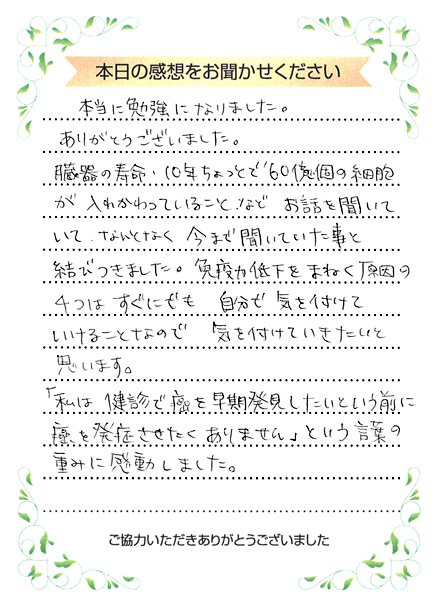 本日の感想をお聞かせください
本当に勉強になりました。
ありがとうございました。
臓器の寿命・10年ちょっとで60億個の細胞
が 入れかわっていること、など お話を聞いて
いて、なんとなく 今まで聞いていた事と
結びつきました。免疫力低下をまねく原因の
4つは すぐにでも 自分で 気を付けて
いけることなので 気を付けていきたいと
思います。
「私は 健診で癌を早期発見したいという前に
癌を発症させたくありません」という言葉の
重みに感動しました。
ご協力いただきありがとうございました